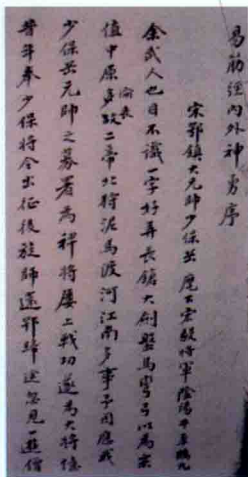 易筋經內外神勇序
宋鄂鎮大元帥少保岳 麾下宏毅將軍湯陰牛臯鶴九
余武人也目不識一字好弄長鎗大劍盤馬彎弓以為樂
值中原淪喪 二帝北狩泥馬渡河江南多事予因應我
少保岳元帥之募署為裨將屢上戰功遂為大將憶
昔年奉少保將令出征後旋師還鄂歸途忽見一遊僧